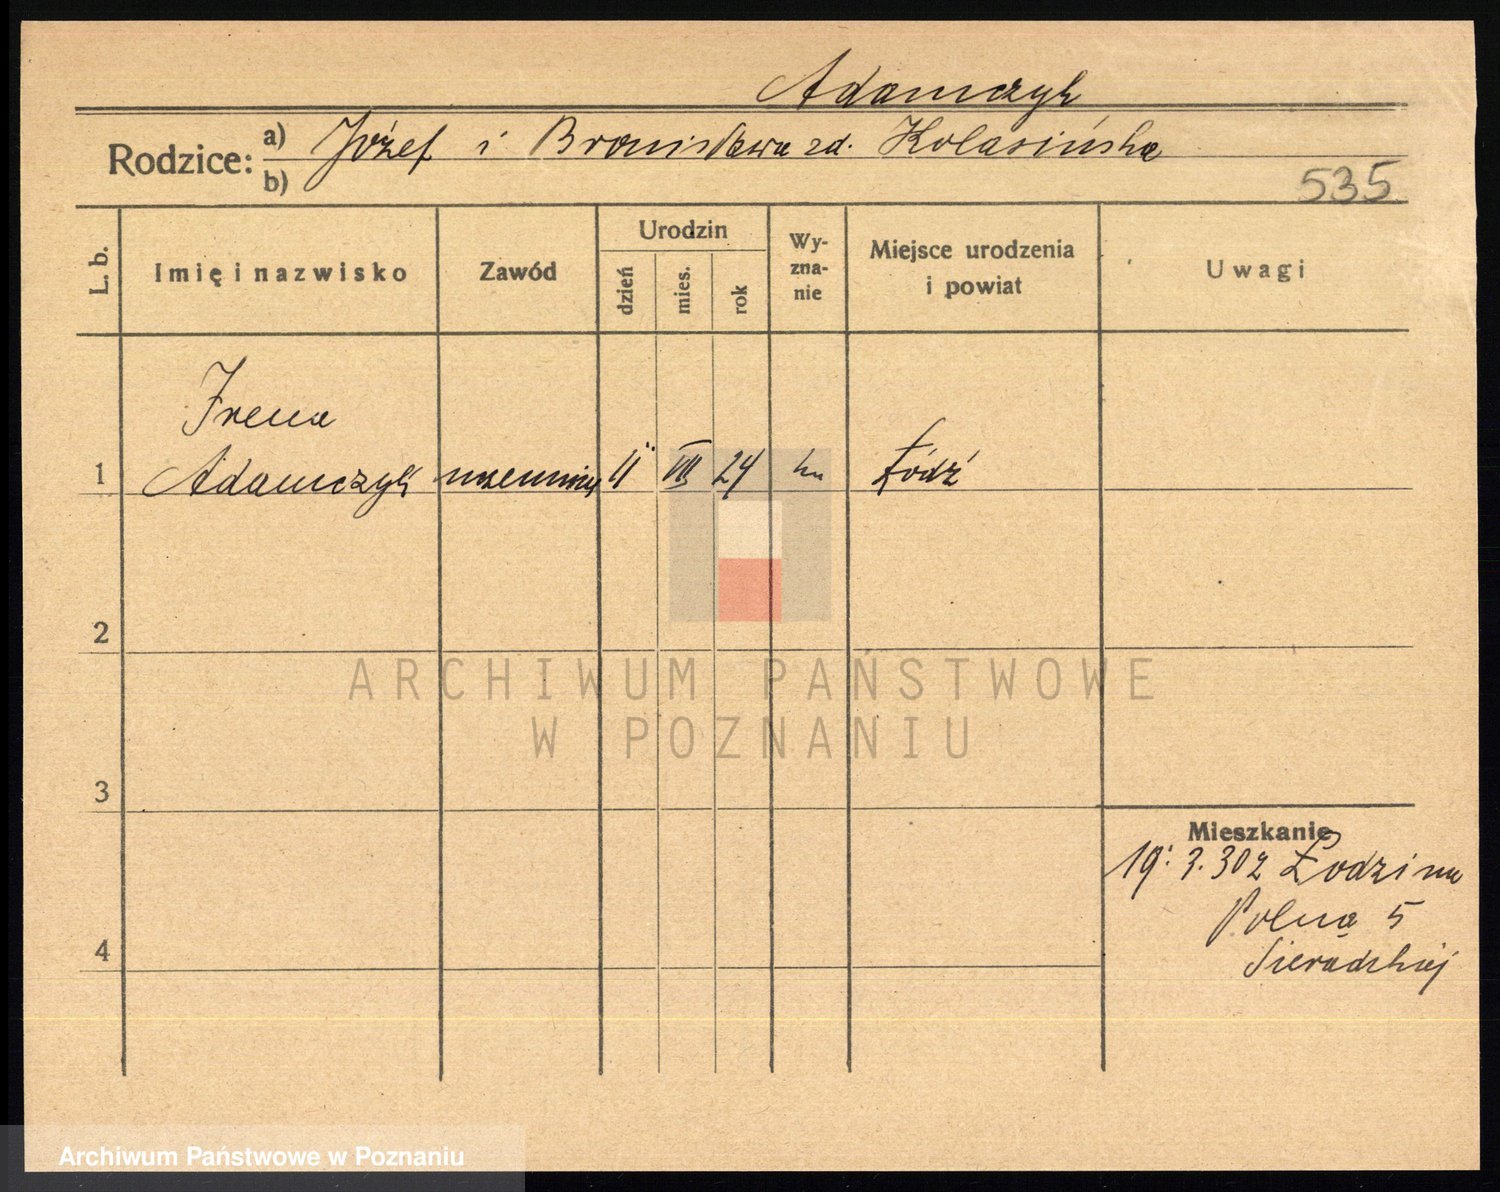 Adamczyk
Rodzice: a) Józef i Bronisława zd. Kolasińska
b)
535
L. b.
Imię i nazwisko
Zawód
Urodzin
dzień
mies.
rok
Wy-
zna-
nie
Miejsce urodzenia
i powiat
Uwagi
Irena
1 Adamczyk 11 VII 24 Łódź
2
3
4
Mieszkanie
19. 3. 30 z Łodzi na
Polna 5
Sieradzkiej
ARCHIWUM PAŃSTWOWE
W POZNANIU
Archiwum Państwowe w Poznaniu